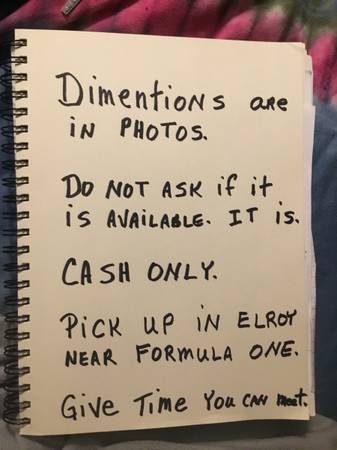 Dimentions are
in PHOTOS.
Do NOT ASK if it
is AVAILABLE. IT is.
CASH ONLY.
PICK UP IN ELROY
NEAR FORMULA ONE.
Give Time You CAN meet.